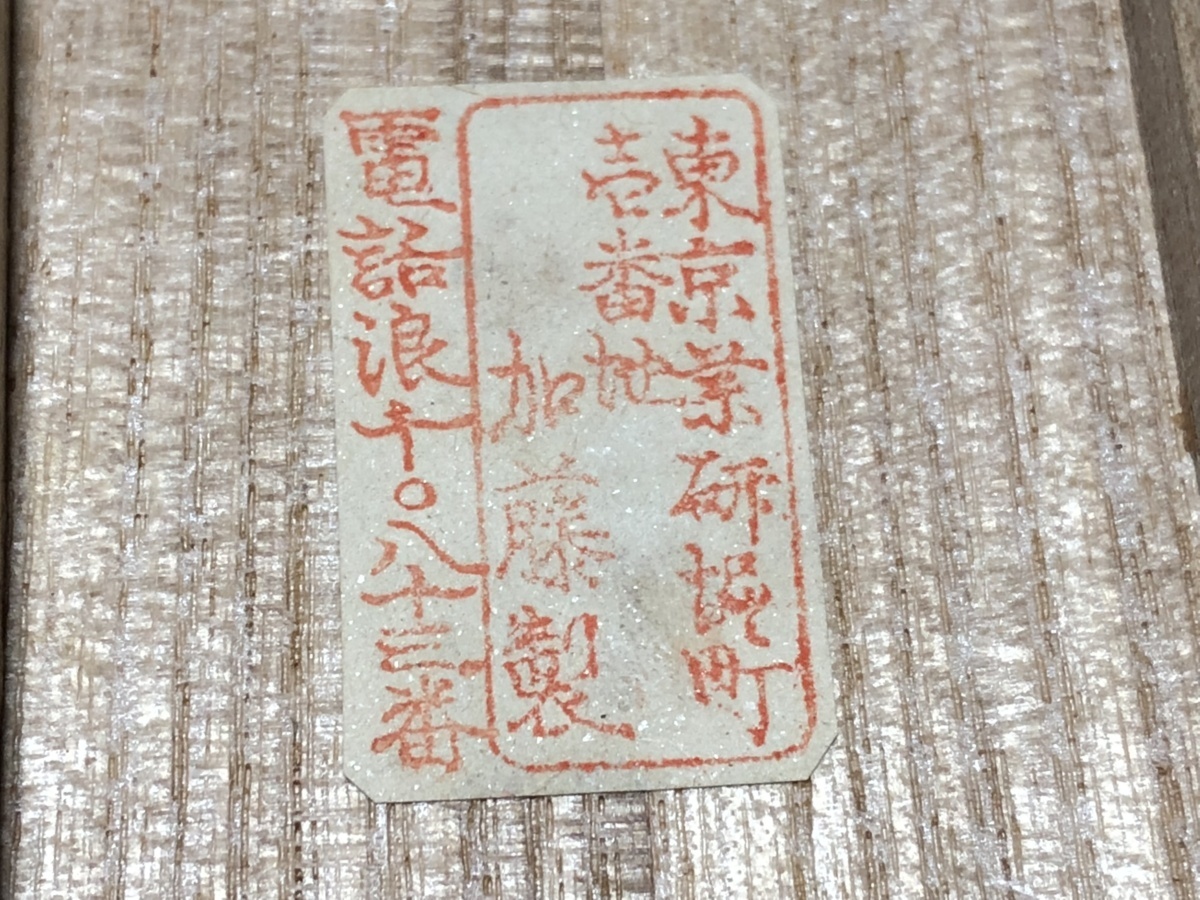 東京薬研堀町
壱番地
加藤製
電話浪千〇八十三番